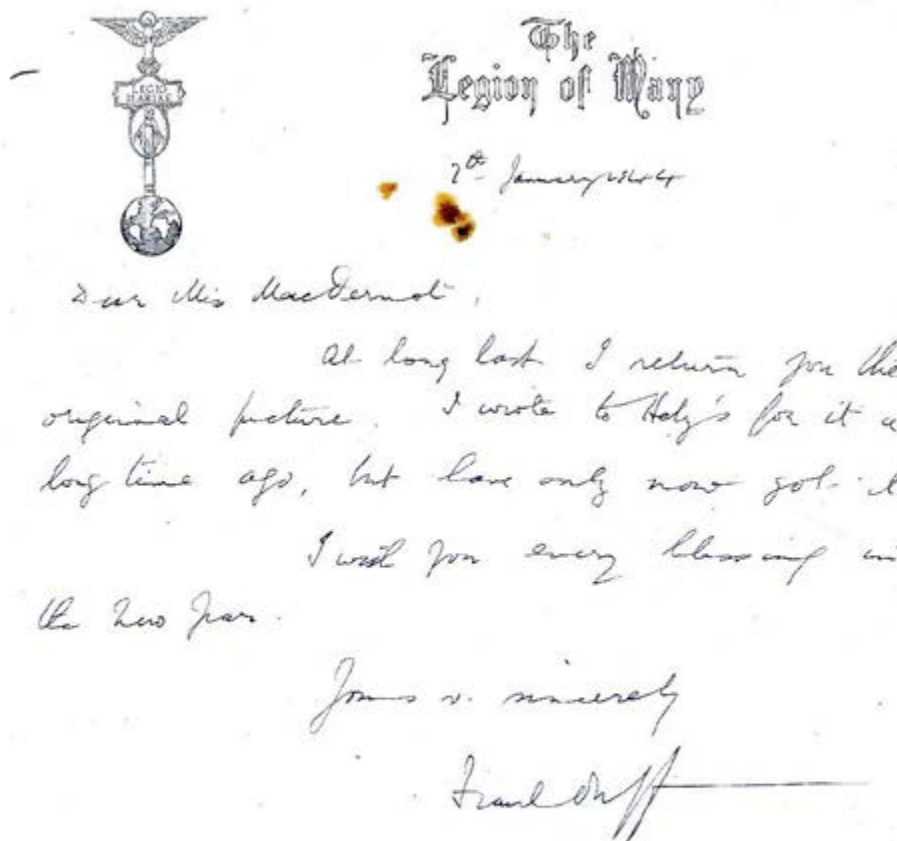 LEGIO
MARIAE
The
Legion of Mary
7th January 1944
Dear Miss MacDermot,
At long last I return you the
original picture. I wrote to Hely's for it a
long time ago, but have only now got it
I wish you every blessing in
the New Year.
Yours v. sincerely
Frank Duff